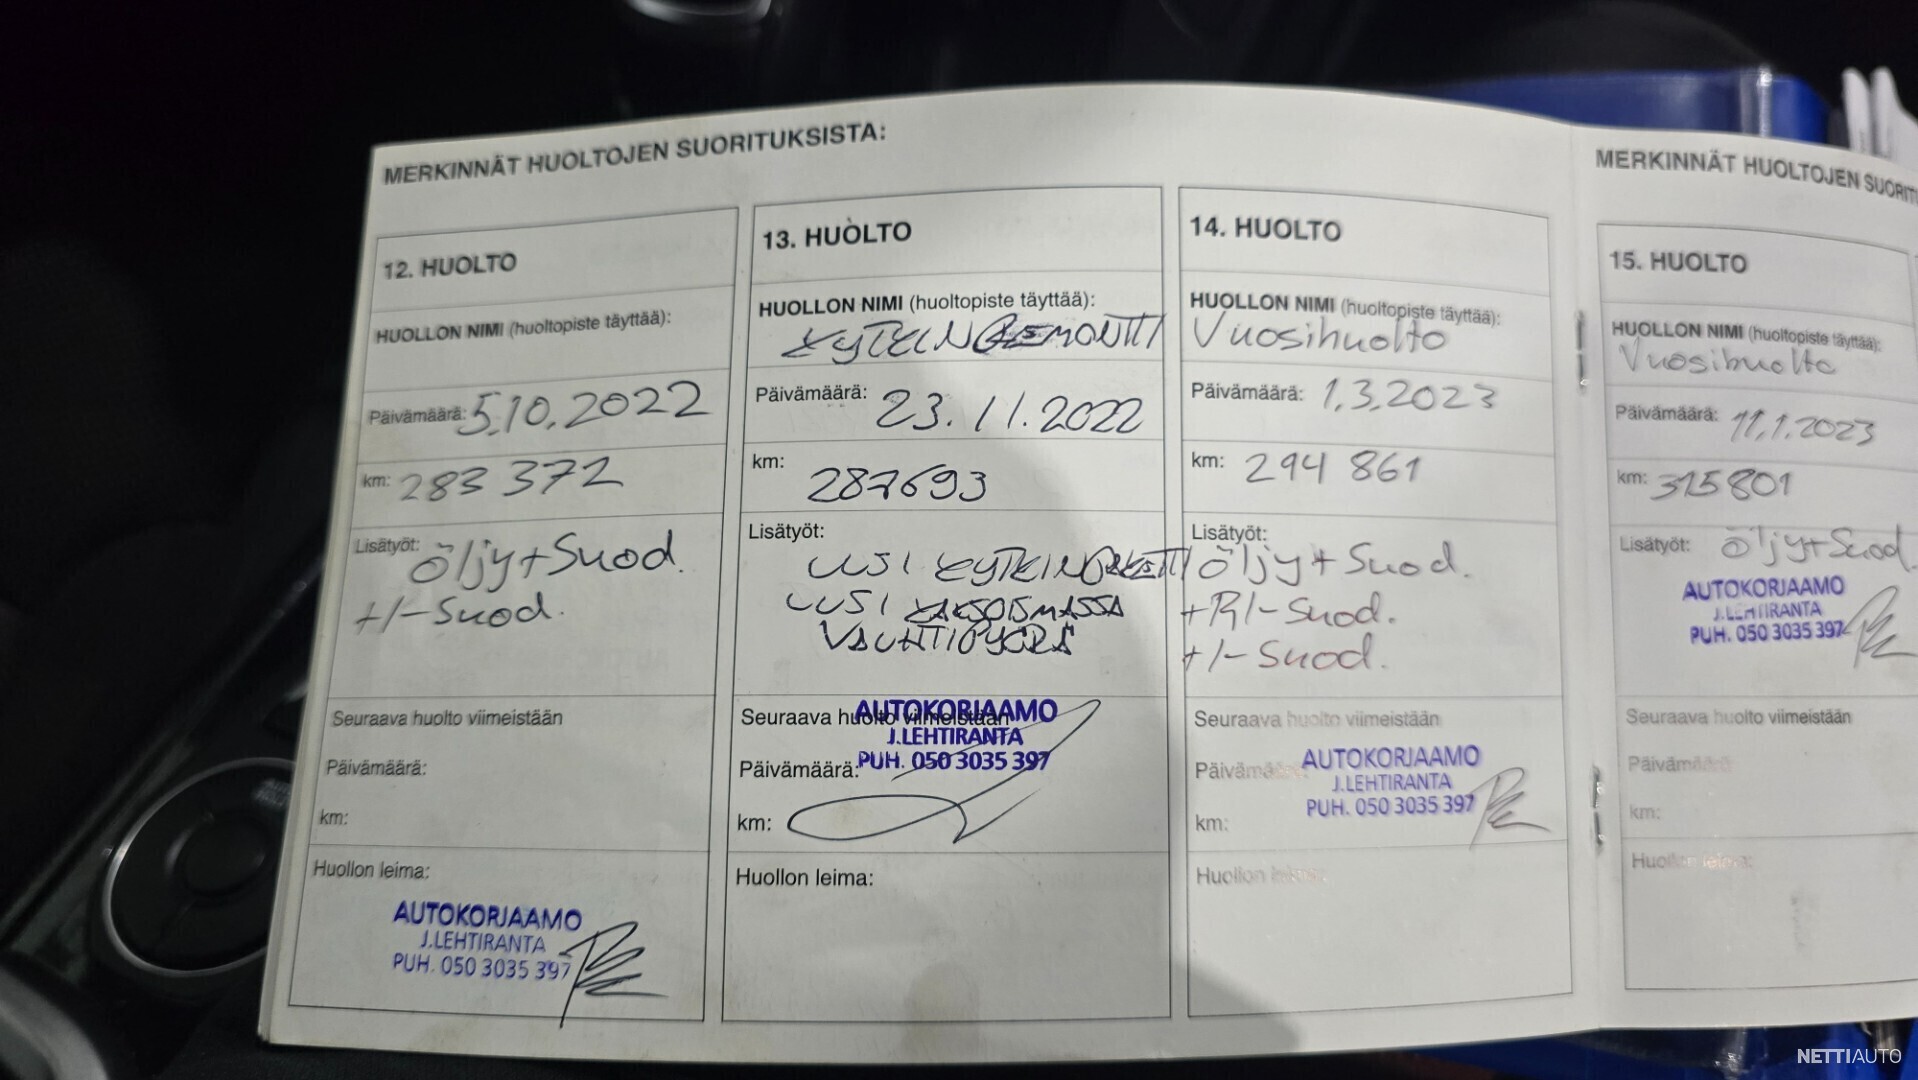 MERKINNÄT HUOLTOJEN SUORITUKSISTA:
12. HUOLTO
HUOLLON NIMI (huoltopiste täyttää):
Päivämäärä: 5.10.2022
km: 283 372
Lisätyöt: Öljy+Suod.
+/- Suod.
Seuraava huolto viimeistään
Päivämäärä:
km:
Huollon leima:
AUTOKORJAAMO
J.LEHTIRANTA
PUH. 050 3035 397
13. HUOLTO
HUOLLON NIMI (huoltopiste täyttää):
KYTKINREMONTTI
Päivämäärä: 23.11.2022
km: 287693
Lisätyöt:
UUSI KYTKINPAKETTI
UUSI KAKSOISMASSA
VAUHTIPYÖRÄ
Seuraava huolto viimeistään
AUTOKORJAAMO
J.LEHTIRANTA
Päivämäärä: PUH. 050 3035 397
km:
Huollon leima:
14. HUOLTO
HUOLLON NIMI (huoltopiste täyttää):
Vuosihuolto
Päivämäärä: 1.3.2023
km: 294 861
Lisätyöt:
Öljy+Suod.
+R/- Suod.
+/- Suod.
Seuraava huolto viimeistään
AUTOKORJAAMO
Päivämäärä: J.LEHTIRANTA
PUH. 050 3035 397
km:
Huollon leima:
MERKINNÄT HUOLTOJEN SUORIT
15. HUOLTO
HUOLLON NIMI (huoltopiste täyttää):
Vuosihuolto
Päivämäärä: 11.1.2023
km: 315801
Lisätyöt: Öljy+Suod.
AUTOKORJAAMO
J.LEHTIRANTA
PUH. 050 3035 397
Seuraava huolto viimeistään
Päivämäärä:
km:
Huollon leima:
NETTIAUTO